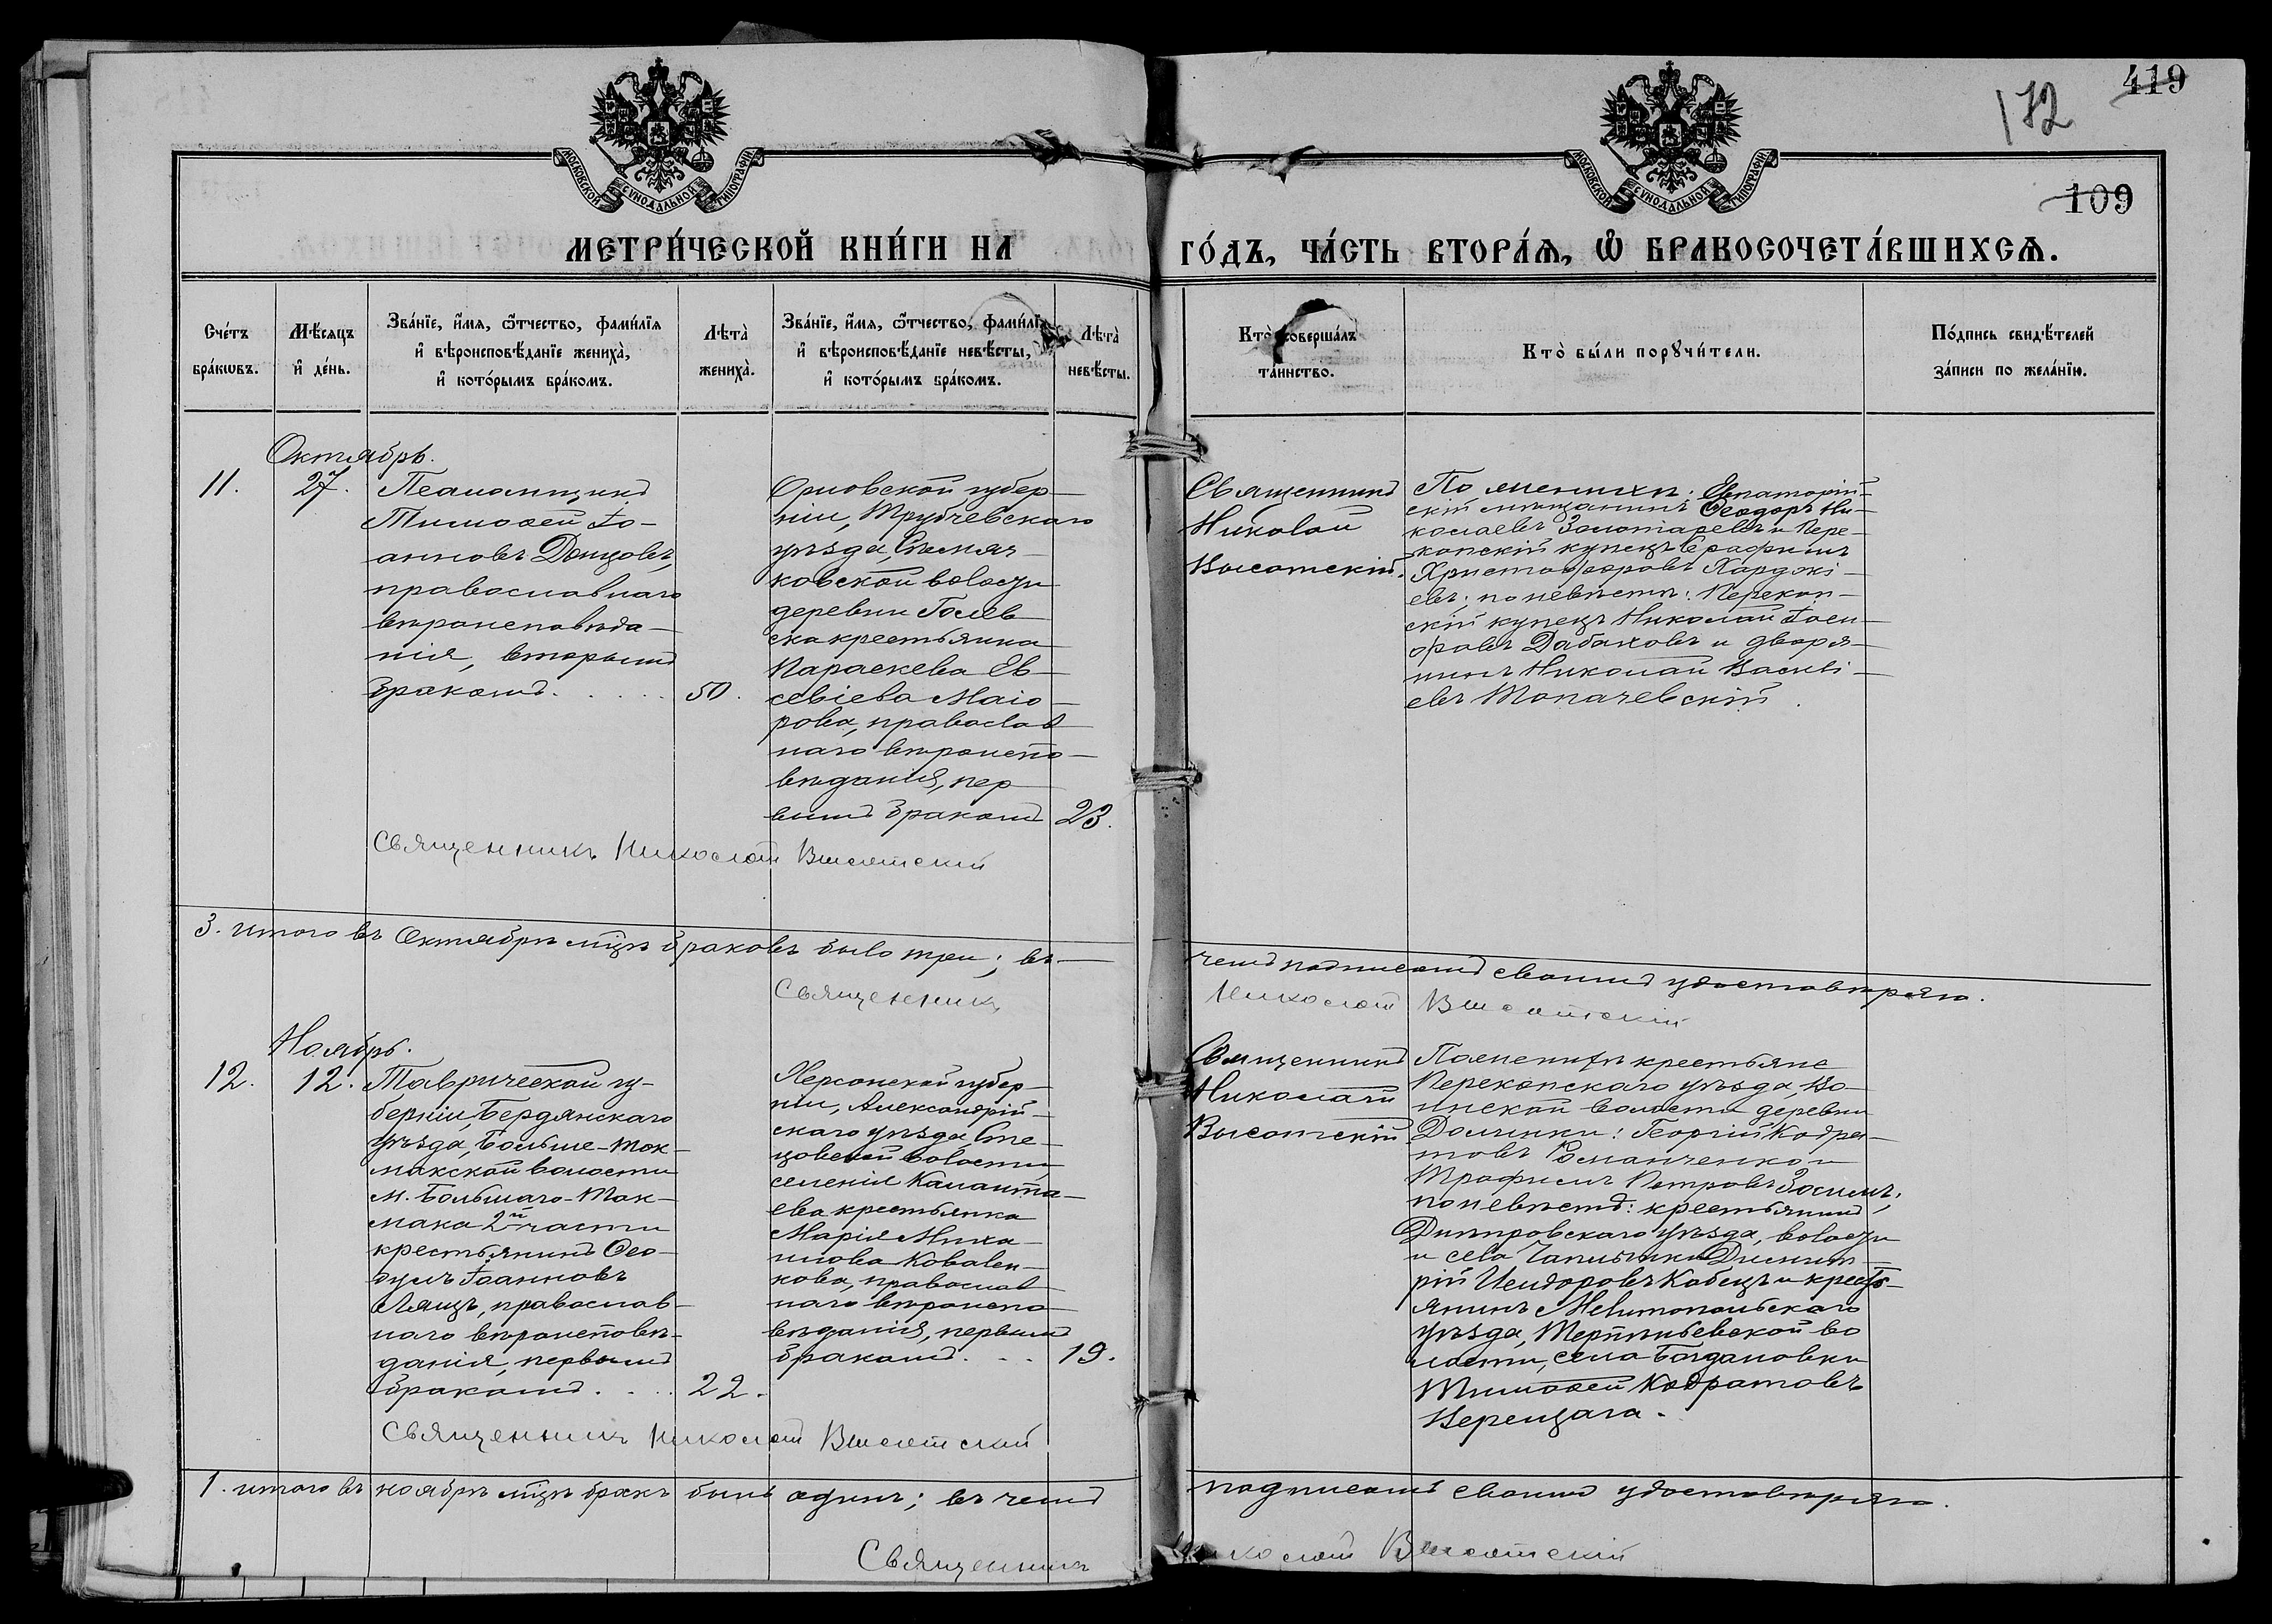 419
172
109
МОСКОВСКОЙ СУНОДАЛЬНОЙ ТИПОГРАФІИ
МОСКОВСКОЙ СУНОДАЛЬНОЙ ТИПОГРАФІИ
МЕТРИ́ЧЕСКОЙ КНИ́ГИ НА
ГО́ДЪ, ЧА́СТЬ ВТОРА́Ѧ, Ѡ҆ БРАКОСОЧЕТА́ВШИХСѦ.
Сче́тъ
бра́кѡвъ.
Мѣ́сяцъ
и҆ де́нь.
Зва́нїе, и҆́мѧ, ѻ҆́тчество, фами́лїѧ
и҆ вѣроисповѣ́данїе жениха̀,
и҆ кото́рымъ бра́комъ.
Лѣта̀
жениха̀.
Зва́нїе, и҆́мѧ, ѻ҆́тчество, фами́лїѧ
и҆ вѣроисповѣ́данїе невѣ́сты,
и҆ кото́рымъ бра́комъ.
Лѣта̀
невѣ́сты.
Кто̀ соверша́лъ
та́инство.
Кто̀ бы́ли порꙋчи́тели.
По́дпись свидѣ́телей
за́писи по жела́нїю.
Октябрь.
11.
27.
Тимоѳей Іо-
анновъ Донцовъ,
православнаго
вѣроисповѣда-
нія, вторымъ
бракомъ.
50.
Орловской губер-
ніи, Трубчевскаго
уѣзда,
ковской волости
деревни
ска крестьянка
Параскева Ев-
севіева Маіо-
рова, православ
наго вѣроиспо-
вѣданія, пер
вымъ бракомъ
23.
Священникъ
Николай
Высотскій.
По женихѣ: Евпаторій-
скій мѣщанинъ Ѳеодоръ Ни-
колаевъ Золотаревъ и Пере-
копскій купецъ Серафимъ
Христофоровъ Харджі-
евъ; по невѣстѣ: Перекоп-
скій купецъ Николай Іоси-
фовъ Дабаховъ и дворя-
нинъ Николай Василі-
евъ Топачевскій.
Священникъ Николай Высотскій
3. итого въ Октябрѣ мцѣ браковъ было три; въ
чемъ подписомъ своимъ удостовѣряю.
Священникъ
Николай Высотскій
Ноябрь.
12.
12.
Таврической гу-
берніи, Бердянскаго
уѣзда, Больше-Ток-
макской волости
м. Большаго-Ток-
мака 2й части
крестьянинъ Ѳео-
дулъ Іоанновъ
Лящъ, православ-
наго вѣроисповѣ-
данія, первымъ
бракомъ.
22.
Херсонской губер-
ніи, Александрій-
скаго уѣзда,
волости
селенія Каланта-
ева крестьянка
Марія Миха-
илова Ковален-
кова, православ
наго вѣроиспо
вѣданія, первымъ
бракомъ.
19.
Священникъ
Николай
Высотскій
По женихѣ крестьяне
Перекопскаго уѣзда, Во-
инской волости деревни
Долинки: Георгій Кодра-
товъ Романченко и
Трофимъ Петровъ Зосимъ;
по невѣстѣ: крестьянинъ
Днѣпровскаго уѣзда, волости
и села Чаплинки Димит-
рій Исидоровъ Кабецъ и кресть-
янинъ Мелитопольскаго
уѣзда, Терпѣньевской во
лости, села Богдановки
Тимоѳей Кодратовъ
Верещага.
Священникъ Николай Высотскій
1. итого въ ноябрѣ мцѣ бракъ былъ одинъ; въ чемъ
подписомъ своимъ удостовѣряю.
Священникъ
Николай Высотскій